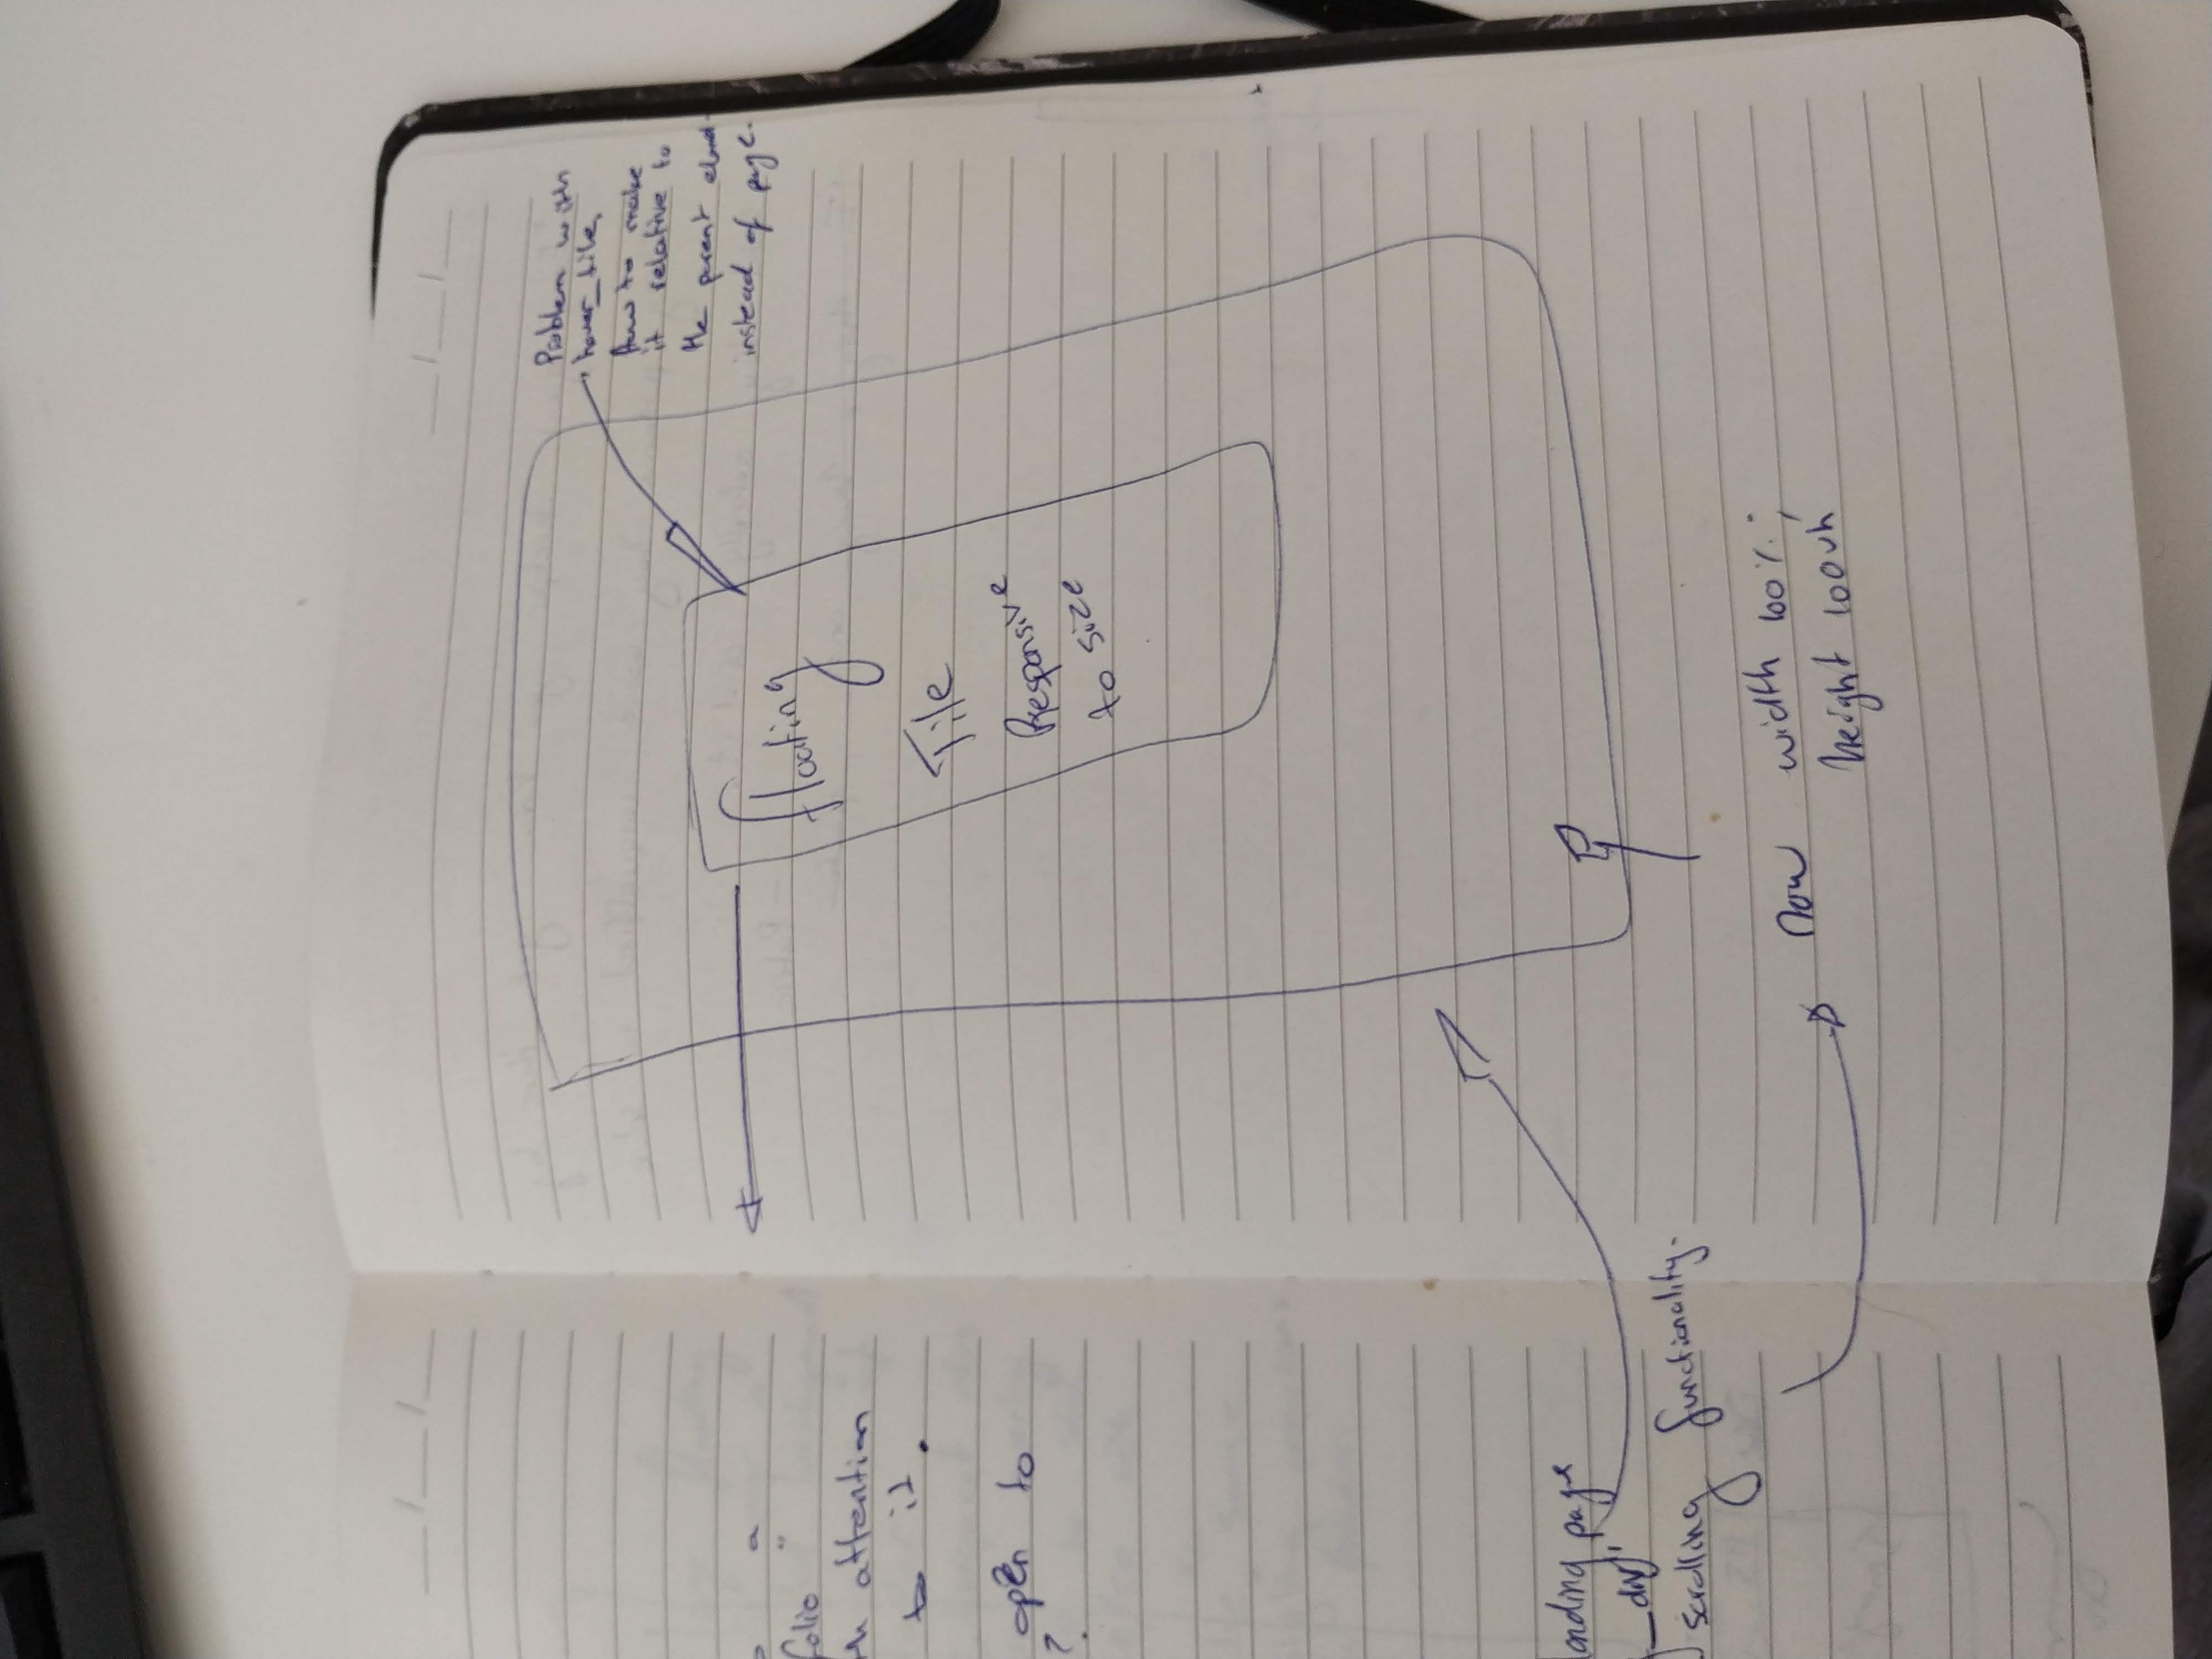 a
folio "
attention
to it.
open to
?
page
_div'
scrolling functionality.
Problem with
hover_tile,
how to make
it relative to
the parent
instead of page.
floating
Tile
Responsive
to size
now width 100%;
height 100vh